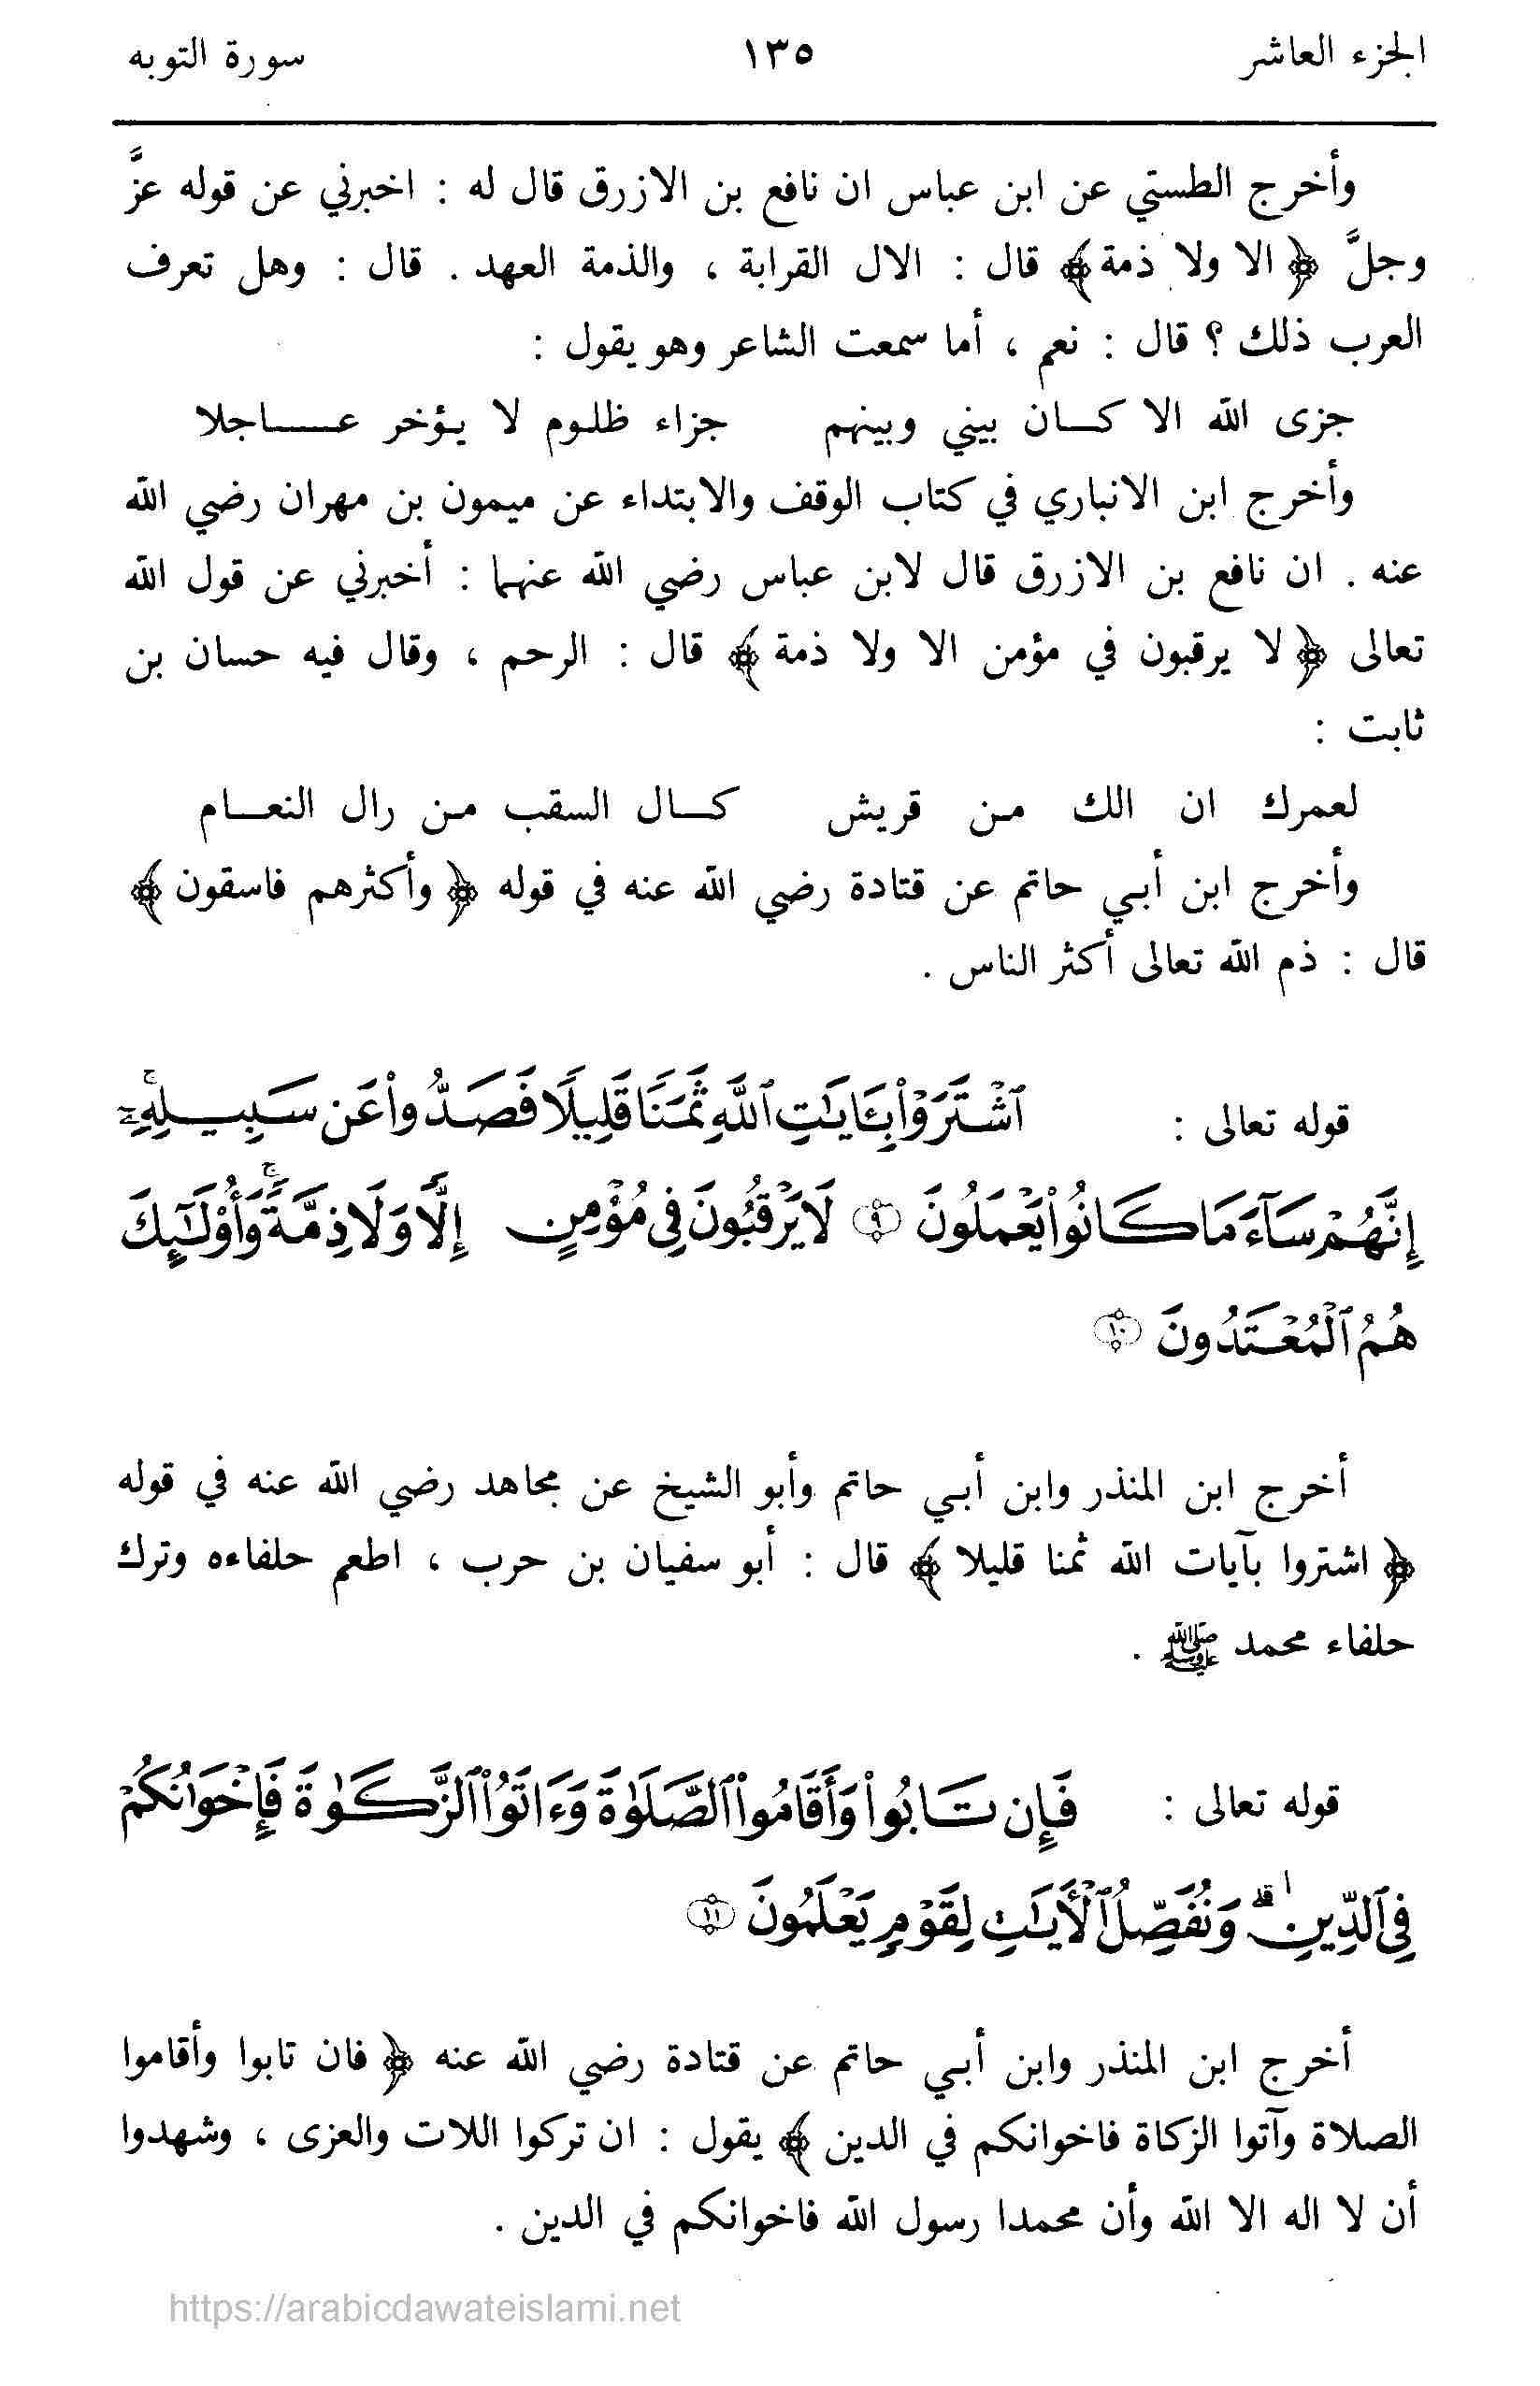 الجزء العاشر ١٣٥ سورة التوبه
وأخرج الطستي عن ابن عباس ان نافع بن الازرق قال له : اخبرني عن قوله عزَّ
وجلَّ ﴿ الا ولا ذمة ﴾ قال : الال القرابة ، والذمة العهد . قال : وهل تعرف
العرب ذلك ؟ قال : نعم ، أما سمعت الشاعر وهو يقول :
جزى الله الا كـان بيني وبينهم جزاء ظلوم لا يؤخر عـاجلا
وأخرج ابن الانباري في كتاب الوقف والابتداء عن ميمون بن مهران رضي الله
عنه . ان نافع بن الازرق قال لابن عباس رضي الله عنهما : أخبرني عن قول الله
تعالى ﴿ لا يرقبون في مؤمن الا ولا ذمة ﴾ قال : الرحم ، وقال فيه حسان بن
ثابت :
لعمرك ان الك من قريش كـال السقب من رال النعـام
وأخرج ابن أبي حاتم عن قتادة رضي الله عنه في قوله ﴿ وأكثرهم فاسقون ﴾
قال : ذم الله تعالى أكثر الناس .
قوله تعالى : ٱشْتَرَوْا۟ بِـَٔايَـٰتِ ٱللَّهِ ثَمَنًا قَلِيلًا فَصَدُّوا۟ عَن سَبِيلِهِۦٓ ۚ
إِنَّهُمْ سَآءَ مَا كَانُوا۟ يَعْمَلُونَ ٩ لَا يَرْقُبُونَ فِى مُؤْمِنٍ إِلًّا وَلَا ذِمَّةً ۚ وَأُو۟لَـٰٓئِكَ
هُمُ ٱلْمُعْتَدُونَ ١٠
أخرج ابن المنذر وابن أبي حاتم وأبو الشيخ عن مجاهد رضي الله عنه في قوله
﴿ اشتروا بآيات الله ثمنا قليلا ﴾ قال : أبو سفيان بن حرب ، اطعم حلفاءه وترك
حلفاء محمد ﷺ .
قوله تعالى : فَإِن تَابُوا۟ وَأَقَامُوا۟ ٱلصَّلَوٰةَ وَءَاتَوُا۟ ٱلزَّكَوٰةَ فَإِخْوَٰنُكُمْ
فِى ٱلدِّينِ ۗ وَنُفَصِّلُ ٱلْـَٔايَـٰتِ لِقَوْمٍ يَعْلَمُونَ ١١
أخرج ابن المنذر وابن أبي حاتم عن قتادة رضي الله عنه ﴿ فان تابوا وأقاموا
الصلاة وآتوا الزكاة فاخوانكم في الدين ﴾ يقول : ان تركوا اللات والعزى ، وشهدوا
أن لا اله الا الله وأن محمدا رسول الله فاخوانكم في الدين .
https://arabicdawateislami.net